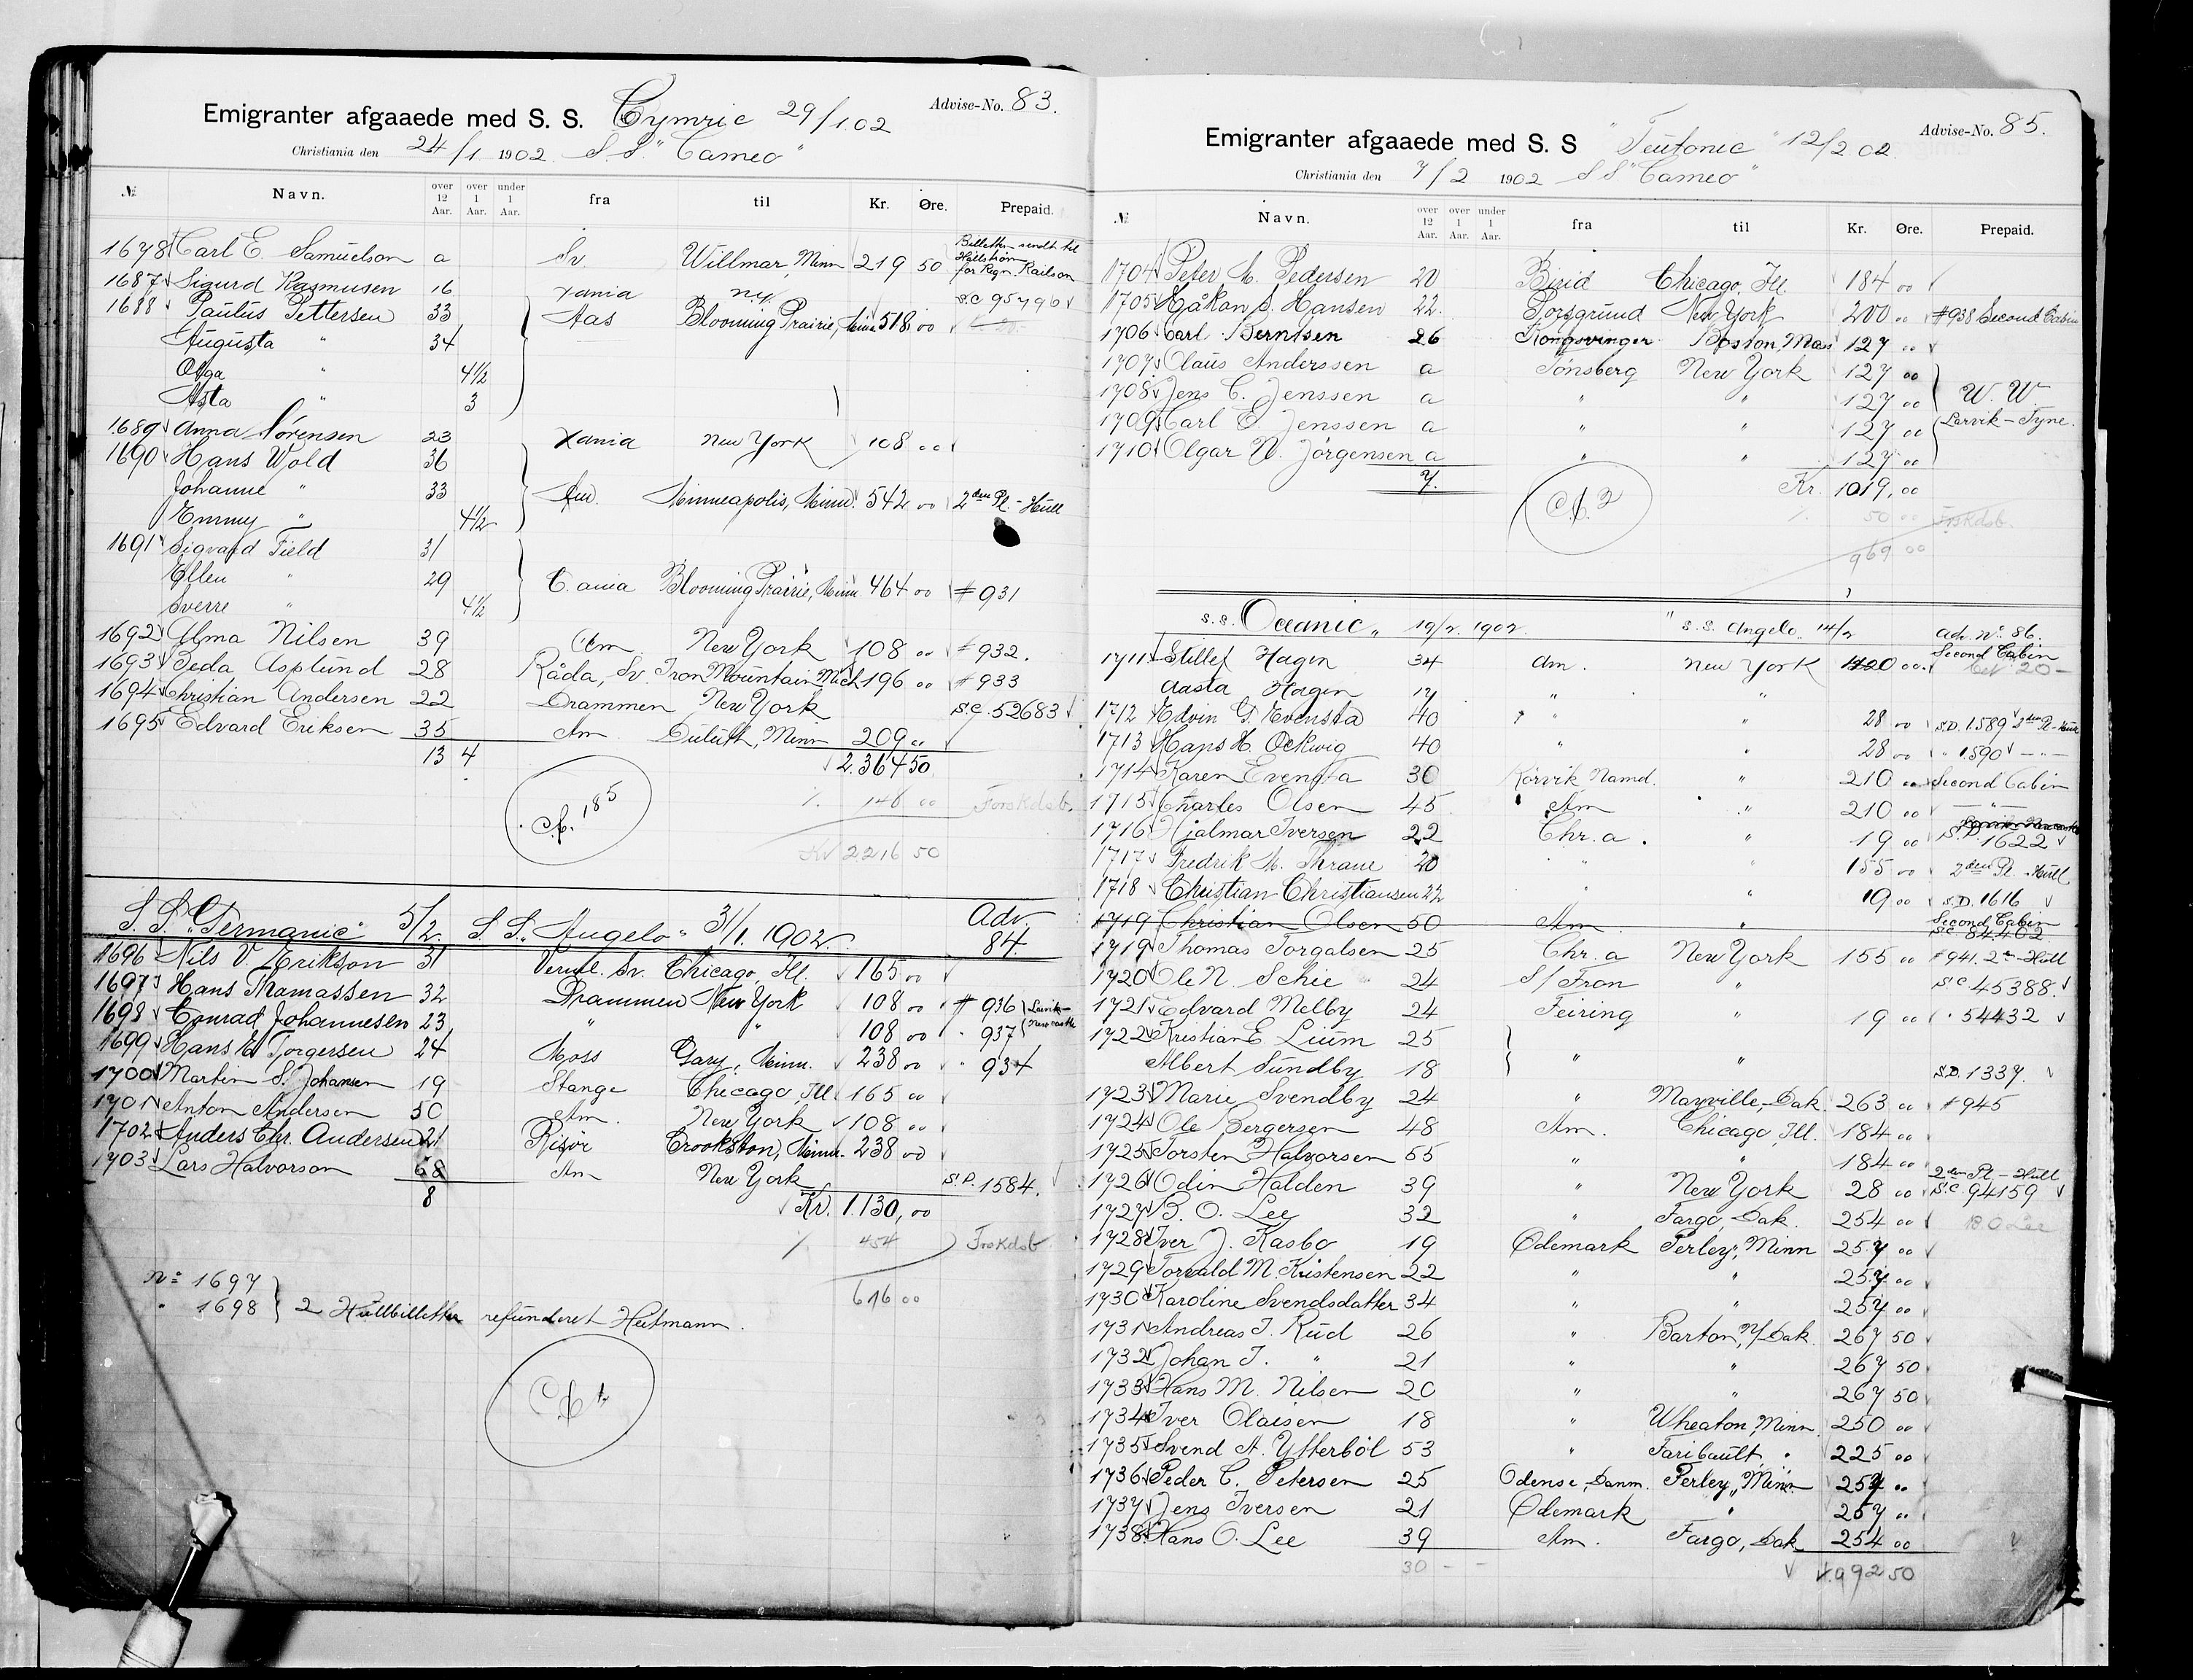 Emigranter afgaaede med S. S. Cymric 29/1 02 Advise-No. 83.
Christiania den 24/1 1902 S S "Cameo"
№ Navn. over 12 Aar. over 1 Aar. under 1 Aar. fra til Kr. Øre. Prepaid.
1678 Carl E. Samuelson a Sv Willmar, Minn 219 50 Billetten sendt til Hallström for Regn. Railson
1687 Sigurd Rasmusen 16 Xania N.Y. S.C 95796
1688 Paulus Pettersen 33 Aas Blooming Prairie, Minn 518 00
Augusta " 34
Olga " 4½
Asta " 3
1689 Anna Sörensen 23 Xania New York 108 00
1690 Hans Wold 36
Johanne " 33 Am. Minneapolis, Minn. 542 00 2den Pl. - Hull
Emmy " 4½
1691 Sigvard Field 31
Ellen " 29 C.ania Blooming Prairie, Minn. 464 00 # 931
Sverre " 4½
1692 Alma Nilsen 39 Am New York 108 00 # 932.
1693 Beda Asplund 28 Råda, Sv. Iron Mountain Mich 196 00 # 933
1694 Christian Andersen 22 Drammen New York S.C. 52683
1695 Edvard Eriksen 35 Am Duluth, Minn 209 00
13 4 2.364 50
% 148 00 Forskdsb.
Kr 2216 50
S. S. "Germanic" 5/2. S. S. "Angelo" 31/1. 1902. Adv. 84.
1696 Nils V. Erikson 31 Verml. Sv. Chicago, Ill. 165 00
1697 Hans Thomassen 32 Drammen New York 108 00 # 936 Larvik-
1698 Conrad Johannesen 23 " " 108 00 " 937 Newcastle
1699 Hans E. Torgersen 24 Moss Gary, Minn. 238 00 " 934
1700 Martin S. Johansen 19 Stange Chicago, Ill 165 00
1701 Anton Andersen 50 Am. New York 108 00
1702 Anders Chr. Andersen 21 Risör Crookston, Minn. 238 00
1703 Lars Halvorson 68 Am New York S.D. 1584.
8 Kr. 1.130, 00
% 454 Forskdsb
676 00
No 1697
" 1698 2 Hullbilletter refunderet Heitmann.
Emigranter afgaaede med S. S "Teutonic" 12/2 02 Advise-No. 85.
Christiania den 7/2 1902 S S "Cameo"
№ Navn. over 12 Aar. over 1 Aar. under 1 Aar. fra til Kr. Øre. Prepaid.
1704 Peter M. Pedersen 20 Birid Chicago, Ill. 184 00
1705 Håkon S. Hansen 22. Porsgrund New York 200 00 #938 Second Cabin
1706 Carl Berntsen 26 Kongsvinger Boston, Mas 127 00
1707 Claus Anderssen a Tönsberg New York 127 00
1708 Jens C. Jenssen a " " 127 00 W. W.
1709 Carl E. Jenssen a " " 127 00 Larvik - Tyne.
1710 Olgar N. Jörgensen a " " 127 00
7. Kr. 1019, 00
% 50 00 Forskdsb.
969 00
s.s. Oceanic 19/2. 1902. "s.s. Angelo" 14/2 adv. No. 86.
1711 Stillef Hagen 34 Am. New York 420 00 Second Cabin
Aasta Hagen 17 " "
1712 Edvin G. Evensta 40 " " 28 00 S.D. 1589 2den Pl - Hull
1713 Hans H. Ockwig 40 " 28 00 " 1590 - " -
1714 Karen Evensta 30 Rörvik Namd. " 210 00 Second Cabin
1715 Charles Olsen 45 Am " 210 00 - " -
1716 Hjalmar Iversen 22 Chr.a. " 19 00 S.D. 1622
1717 Fredrik M. Thrane 20 " " 155 00 2den Pl. - Hull
1718 Christian Christiansen 22 " " 19 00 S.D. 1616
1719 Christian Olsen 50 Am " Second Cabin S.C 84402
1719 Thomas Torgalsen 25 Chr. a New York 155 00 # 941. 2den - Hull
1720 Ole N. Schie 24 S/Fron " S.C 45388.
1721 Edvard Melby 24 Feiring " 19 00 " 54432
1722 Kristian E Lium 25
Albert Sundby 18 " " S.D. 1337.
1723 Marie Svendby 24 " Mayville, Dak. 263 00 # 945
1724 Ole Bergersen 48 Am. Chicago, Ill. 184 00
1725 Torsten Halvorsen 55 " " 184 00
1726 Odin Halden 39 " New York 28 00 2den Pl - Hull S.C 94159
1727 B. O. Lee 32 " Fargo, Dak. 254 00 B O Lee
1728 Iver J. Rasbo 19 Ødemark Perley, Minn 257 00
1729 Torvald M. Kristensen 22 " " 257 00
1730 Karoline Svendsdatter 34 " " 257 00
1731 Andreas J. Rud 26 " Barton, N/Dak. 267 50
1732 Johan J. " 21 " " 267 50
1733 Hans M. Nilsen 20 " " 267 50
1734 Iver Olaisen 18 " Wheaton, Minn 250 00
1735 Svend A. Ytterböl 53 " Faribault, " 225 00
1736 Peder C. Petersen 25 Odense, Danm. Perley, Minn 254 00
1737 Jens Iversen 21 Ødemark " 257 00
1738 Hans O. Lee 39 Am. Fargo, Dak 254 00
30 - - 4.992 50